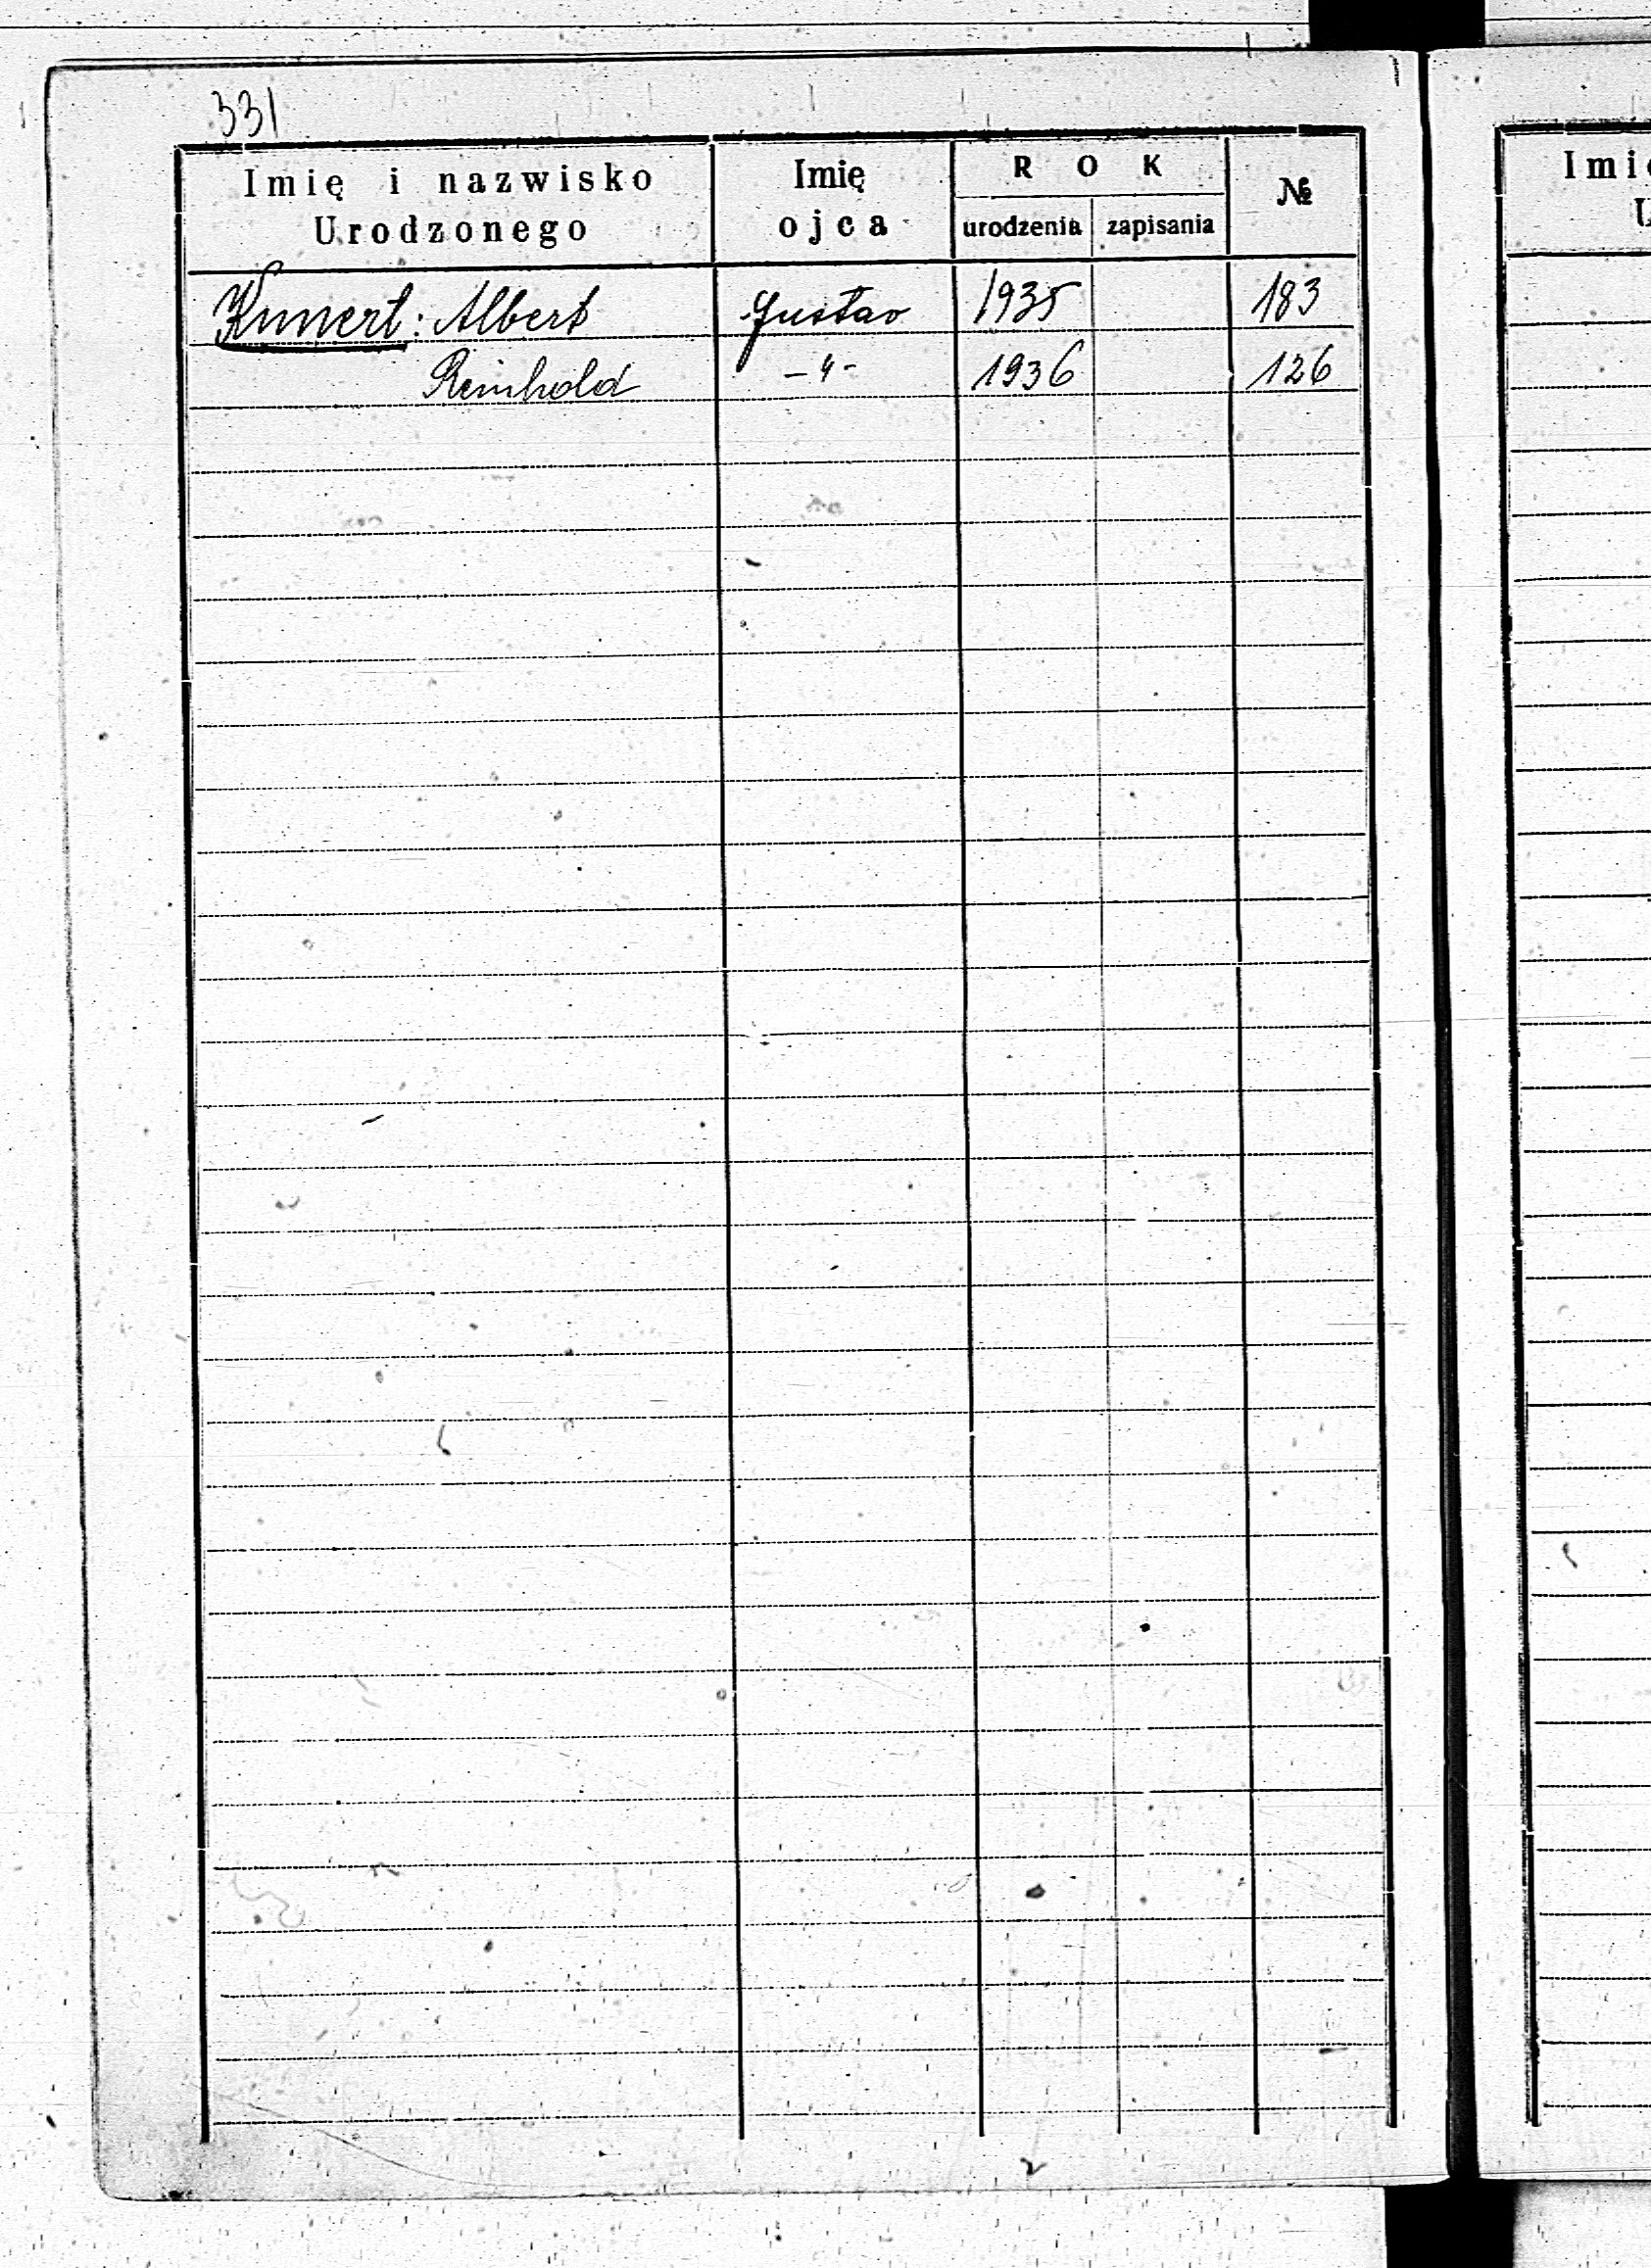 331
Imię i nazwisko Urodzonego | Imię ojca | ROK urodzenia | zapisania | №
Kunert: Albert | Gustav | 1935 | | 183
Reinhold | –"– | 1936 | | 126
Imi
U